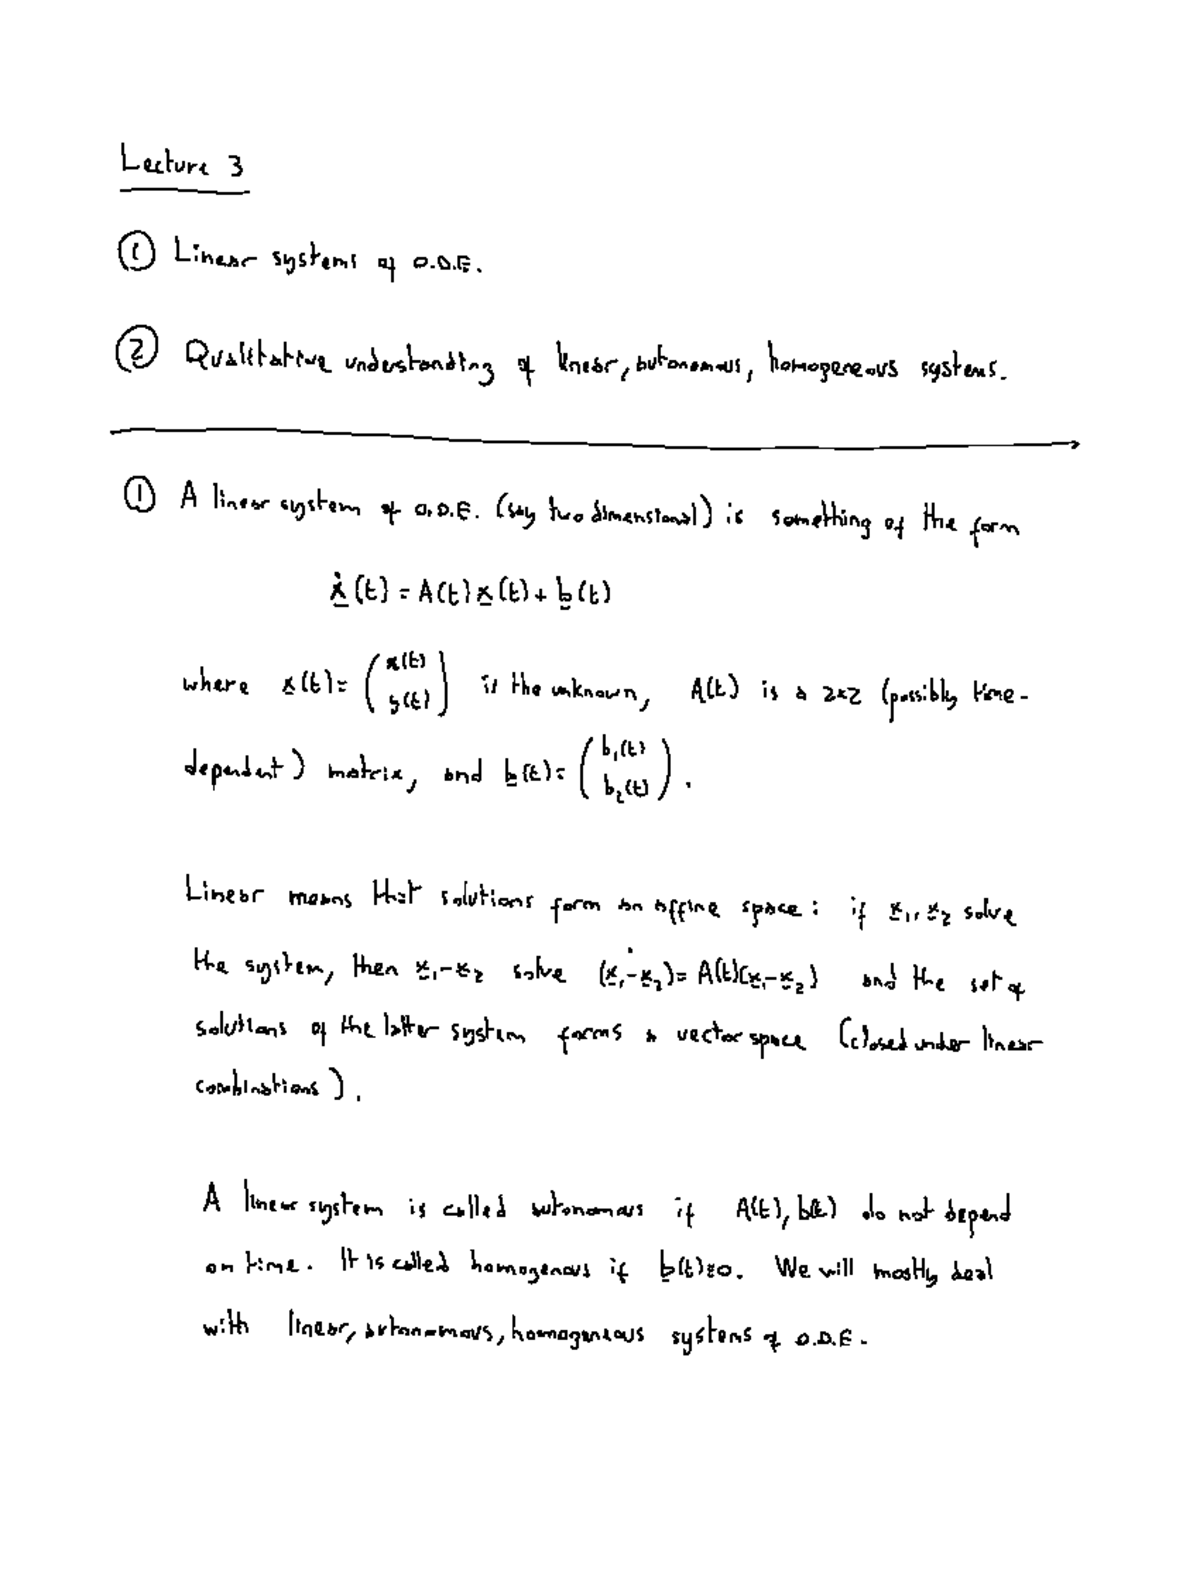 Lecture 3
① Linear systems of O.D.E.
② Qualitative understanding of linear, autonomous, homogeneous systems.
① A linear system of O.D.E. (say two dimensional) is something of the form
ẋ(t) = A(t)x(t) + b(t)
where x(t) = (x(t) y(t)) is the unknown, A(t) is a 2x2 (possibly time-
dependent) matrix, and b(t) = (b₁(t) b₂(t)).
Linear means that solutions form an affine space: if x₁, x₂ solve
the system, then x₁-x₂ solve (x₁-x₂)˙ = A(t)(x₁-x₂) and the set of
solutions of the latter system forms a vector space (closed under linear
combinations).
A linear system is called autonomous if A(t), b(t) do not depend
on time. It is called homogenous if b(t)≡0. We will mostly deal
with linear, autonomous, homogeneous systems of O.D.E.